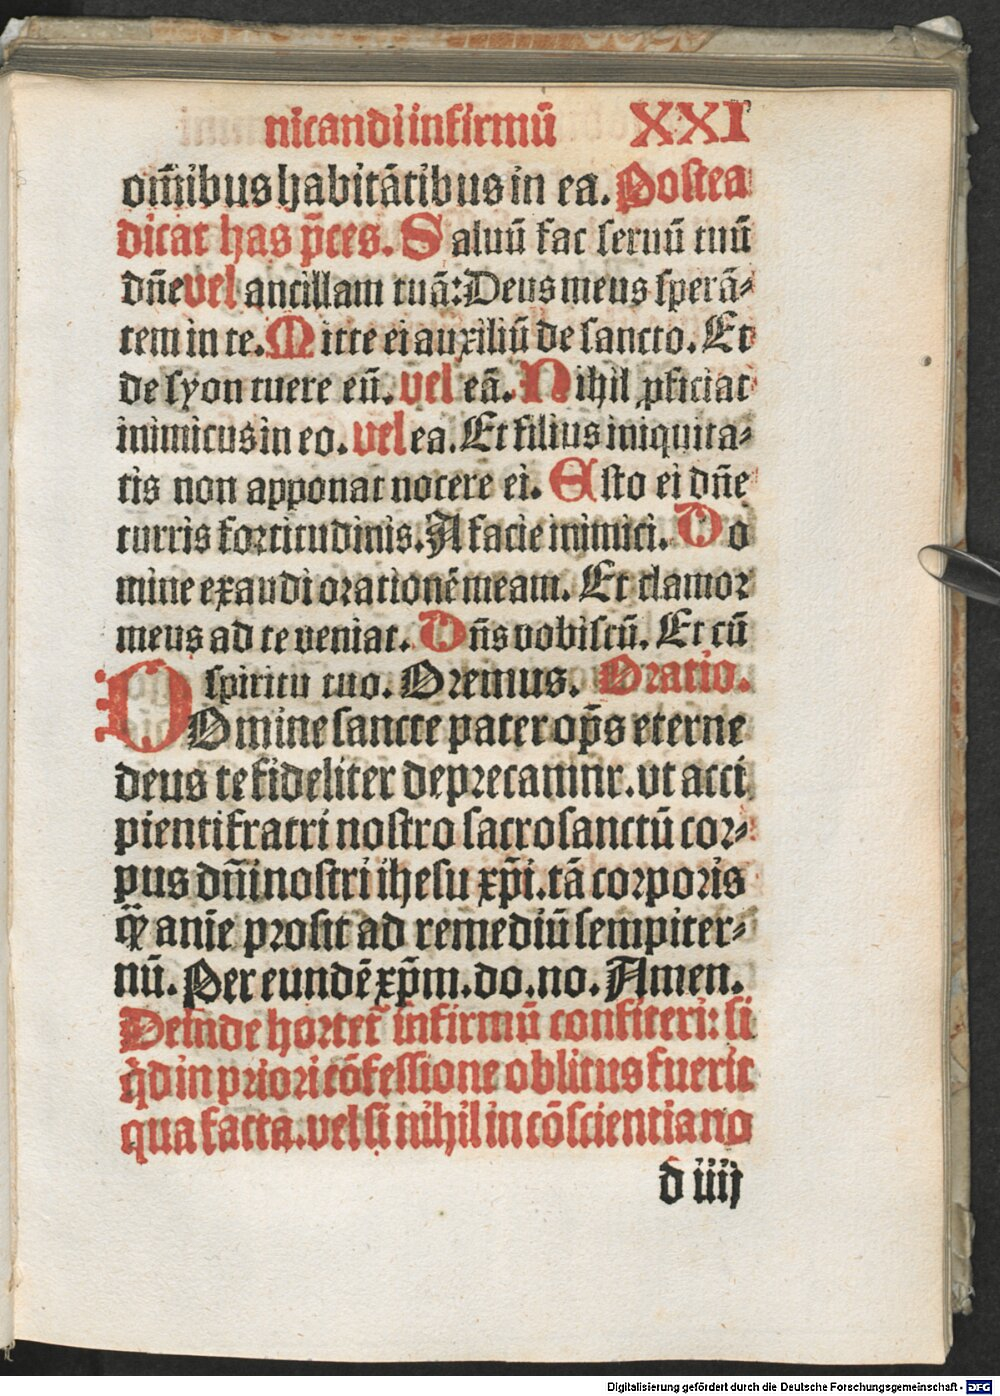 nicandi infirmū XXI
om̄ibus habitātibus in ea. Postea
dicat has p̄ces. Saluū fac seruū tuū
dn̄e vel ancillam tuā: Deus meus sperā⸗
tem in te. Mitte ei auxiliū de sancto. Et
de syon tuere eū. vel eā. Nihil ꝓficiat
inimicus in eo. vel ea. Et filius iniquita⸗
tis non apponat nocere ei. Esto ei dn̄e
turris fortitudinis. A facie inimici. Do
mine exaudi orationē meam. Et clamor
meus ad te veniat. Dn̄s vobiscū. Et cū
spiritu tuo. Oremus. Oratio.
DOmine sancte pater op̄s eterne
deus te fideliter deprecamur. vt acci
pienti fratri nostro sacrosanctū cor⸗
pus dn̄i nostri ihesu xp̄i. tā corporis
qͣꝫ anīe prosit ad remediū sempiter⸗
nū. Per eundē xp̄m. do. no. Amen.
Deinde hortet᷑ infirmū confiteri: si
qͥd in priori cōfessione oblitus fuerit
qua facta. vel si nihil in cōscientia no
d iiij
Digitalisierung gefördert durch die Deutsche Forschungsgemeinschaft - DFG